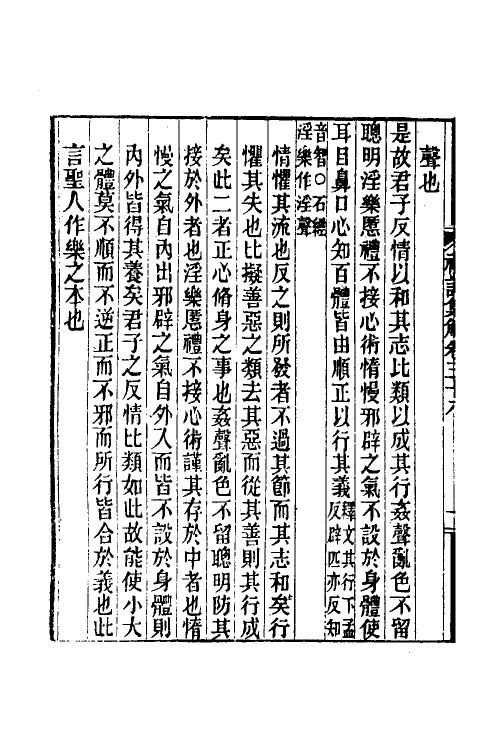 聲也
是故君子反情以和其志比類以成其行姦聲亂色不留
聰明淫樂慝禮不接心術惰慢邪辟之氣不設於身體使
耳目鼻口心知百體皆由順正以行其義釋文其行下孟
反辟匹亦反知
音智○石經
淫樂作淫聲
情懼其流也反之則所發者不過其節而其志和矣行
懼其失也比擬善惡之類去其惡而從其善則其行成
矣此二者正心脩身之事也姦聲亂色不留聰明防其
接於外者也淫樂慝禮不接心術謹其存於中者也惰
慢之氣自內出邪辟之氣自外入而皆不設於身體則
內外皆得其養矣君子之反情比類如此故能使小大
之體莫不順而不逆正而不邪而所行皆合於義也此
言聖人作樂之本也